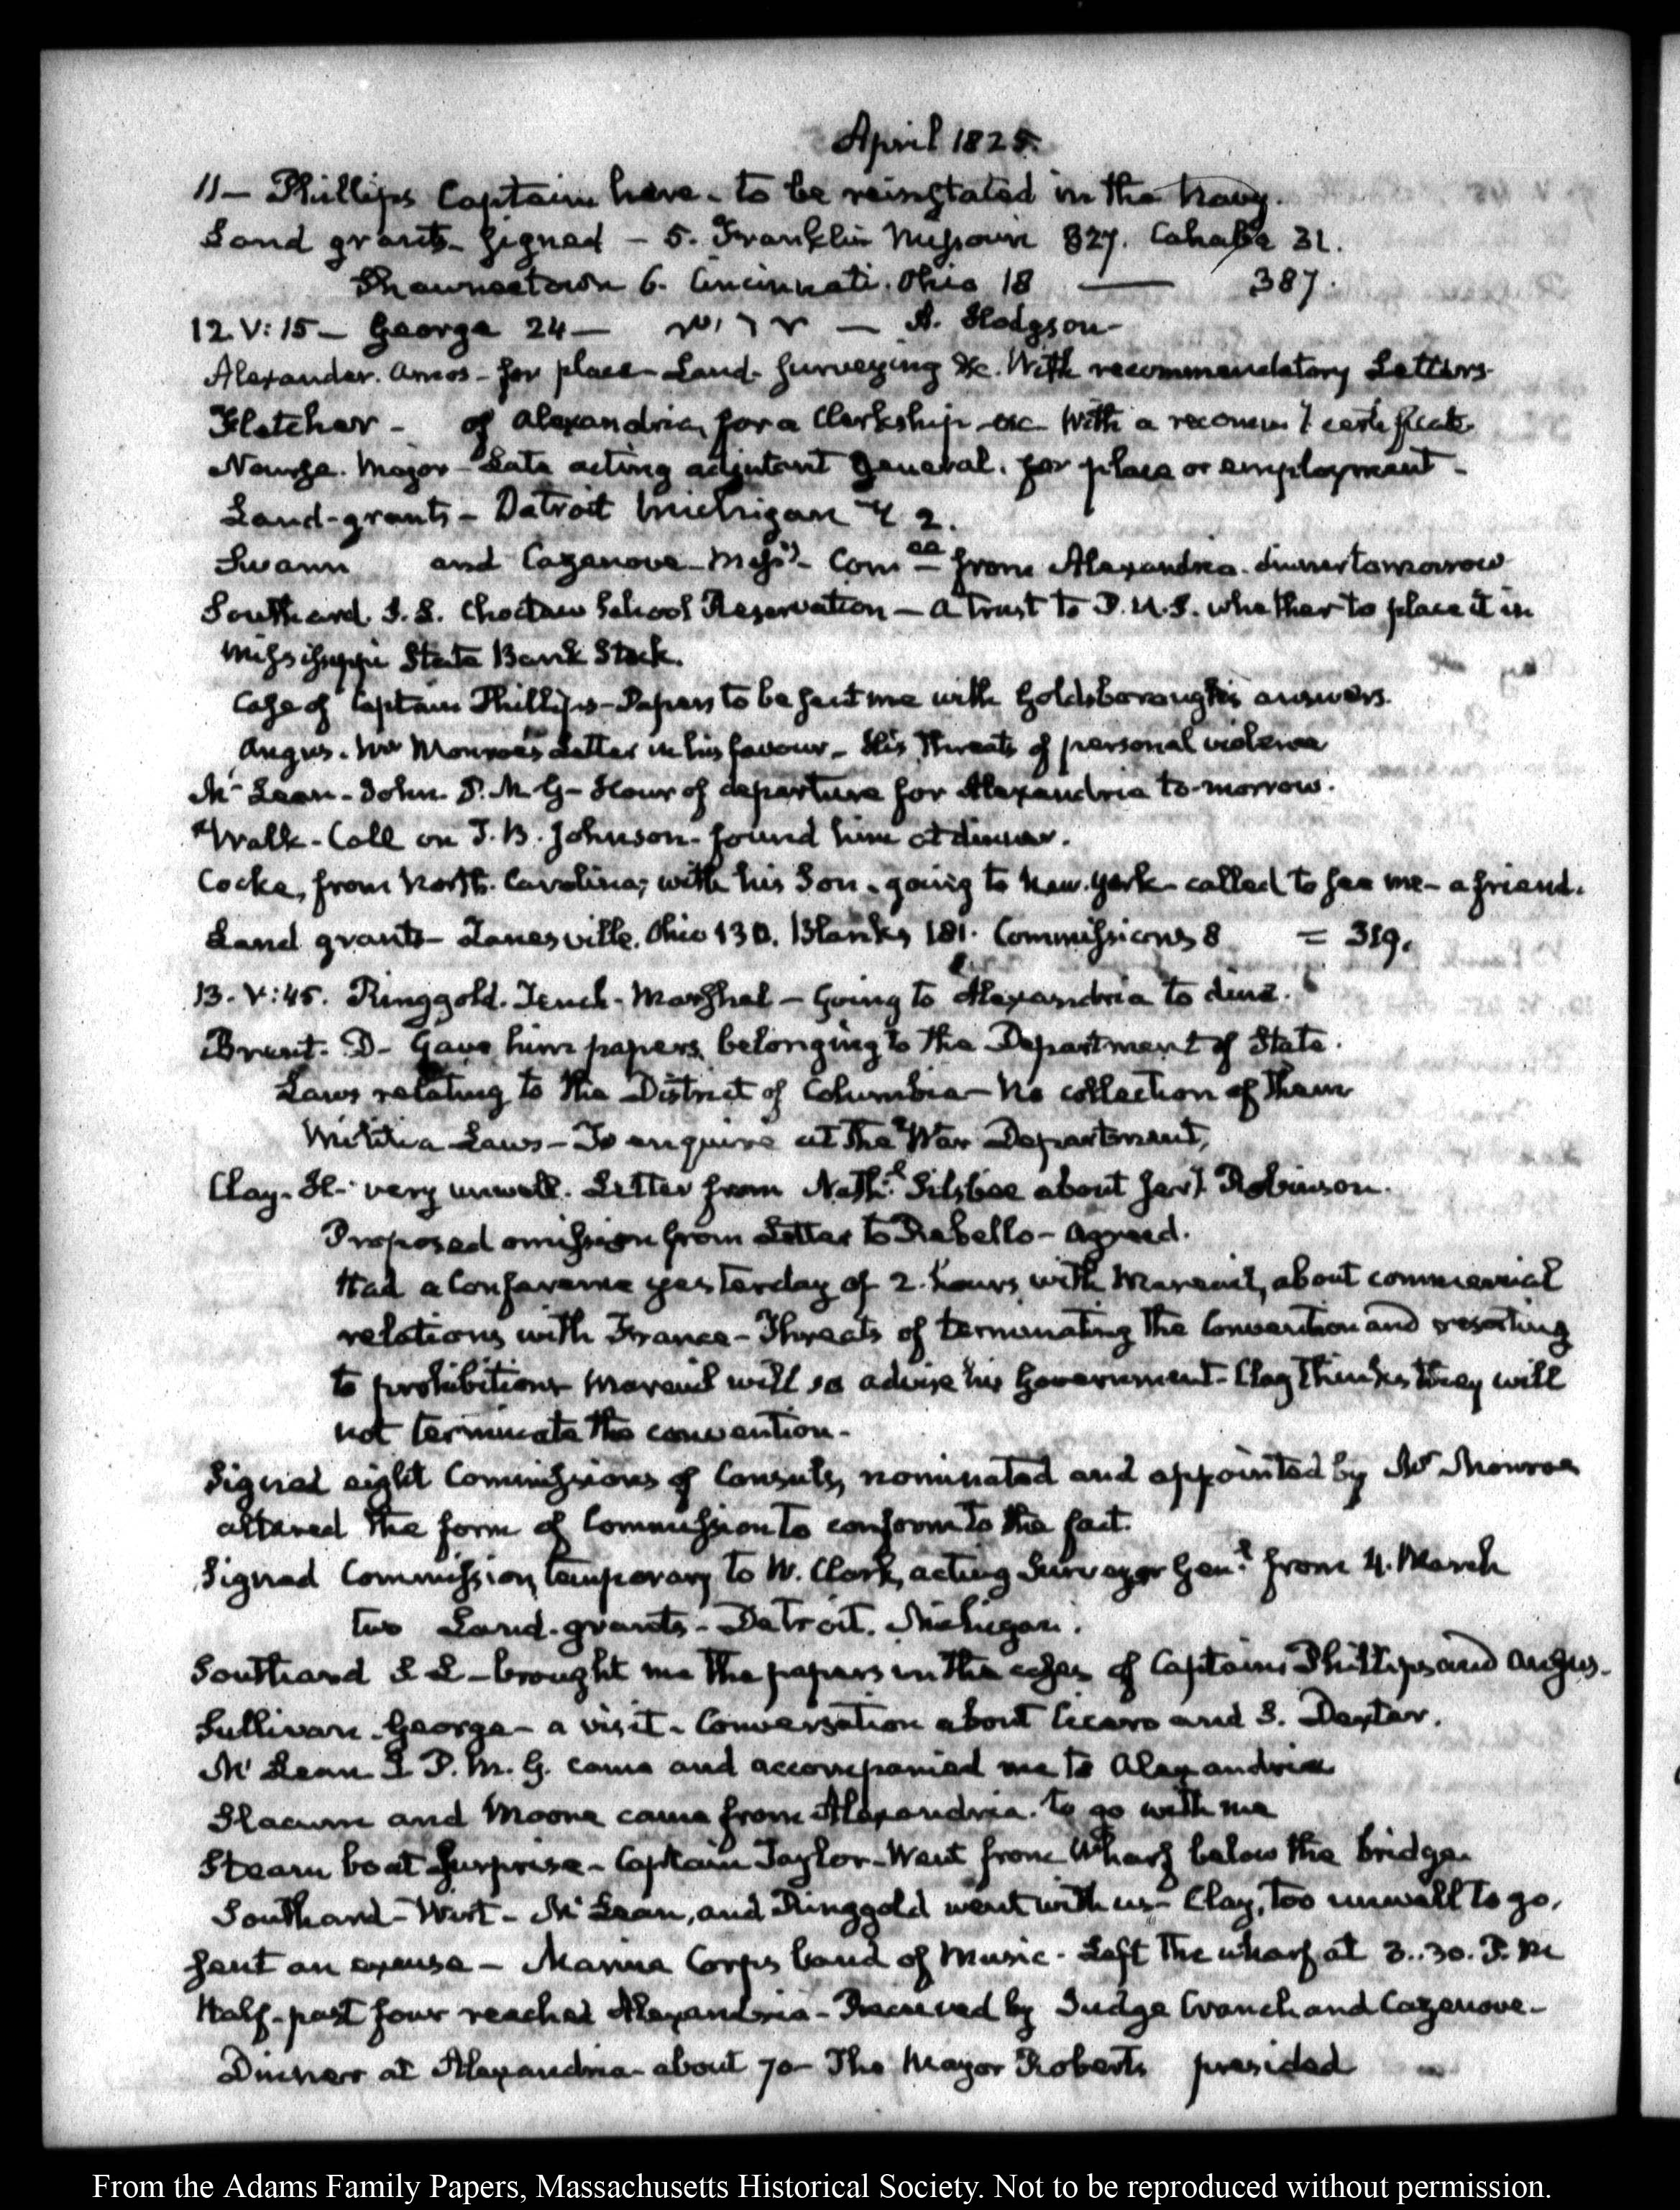 April 1825.
11— Phillips Captain here - to be reinstated in the Navy.
Land grants - signed — 5. Franklin Missouri 327. Cahaba 31.
Shawneetown 6. Cincinnati. Ohio 18 — 387.
12. V:15 — George 24 — — A. Hodgson —
Alexander. Amos - for place - Land - Surveying &c. With recommendatory Letters -
Fletcher - of Alexandria, for a Clerkship &c With a certificate
Nourse. Major - Late acting adjutant General. for place or employment -
Land-grants - Detroit Michigan 2.
Swann and Cazenove - Mess.rs Com.ee from Alexandria. dinner tomorrow
Southard. S. L. Choctaw School Reservation — A trust to P. U. S. whether to place it in
Mississippi State Bank Stock.
Case of Captain Phillips - Papers to be sent me with Goldsborough's answers.
Angus. Mr Monroe's Letter in his favour - His threats of personal violence
McLean - John. P. M. G - Hour of departure for Alexandria to-morrow.
Walk - Call on J. B. Johnson - found him at dinner.
Cocke, from North. Carolina, with his Son - going to New. York - called to see me - a friend.
Land grants - Zanesville. Ohio 130. Blanks 181. Commissions 8 = 319.
13. V:45. Ringgold. Tench - Marshal — Going to Alexandria to dine.
Brent. D - Gave him papers belonging to the Department of State.
Laws relating to the District of Columbia — No collection of them
Militia Laws — To enquire at the War Department,
Clay. H - very unwell. Letter from Nath.l Silsbee about Robinson.
Proposed omission from Letter to Rebello - agreed.
Had a Conference yesterday of 2. hours with Mareuil, about commercial
relations with France - Threats of terminating the Convention and resorting
to prohibitions Mareuil will so advise his Government - Clay thinks they will
not terminate the convention -
Signed eight Commissions of Consuls, nominated and appointed by Mr Monroe
altered the form of Commission to conform to the fact.
Signed Commission, temporary to W. Clark, acting Surveyor Gen.l from 4. March
two Land-grants - Detroit. Michigan.
Southard S L - brought me the papers in the cases of Captains Phillips and Angus.
Sullivan. George - a visit - Conversation about Cicero and S. Dexter.
McLean J P. M. G. came and accompanied me to Alexandria
Slacum and Moore came from Alexandria. to go with me
Steam boat Surprise - Captain Taylor - Went from Wharf below the bridge.
Southard - Wirt - McLean, and Ringgold went with us - Clay, too unwell to go,
sent an excuse — Marine Corps band of Music - Left the wharf at 3..30. P. M
Half-past four reached Alexandria - Received by Judge Cranch and Cazenove -
Dinner at Alexandria - about 70 - The Mayor Roberts presided
From the Adams Family Papers, Massachusetts Historical Society. Not to be reproduced without permission.